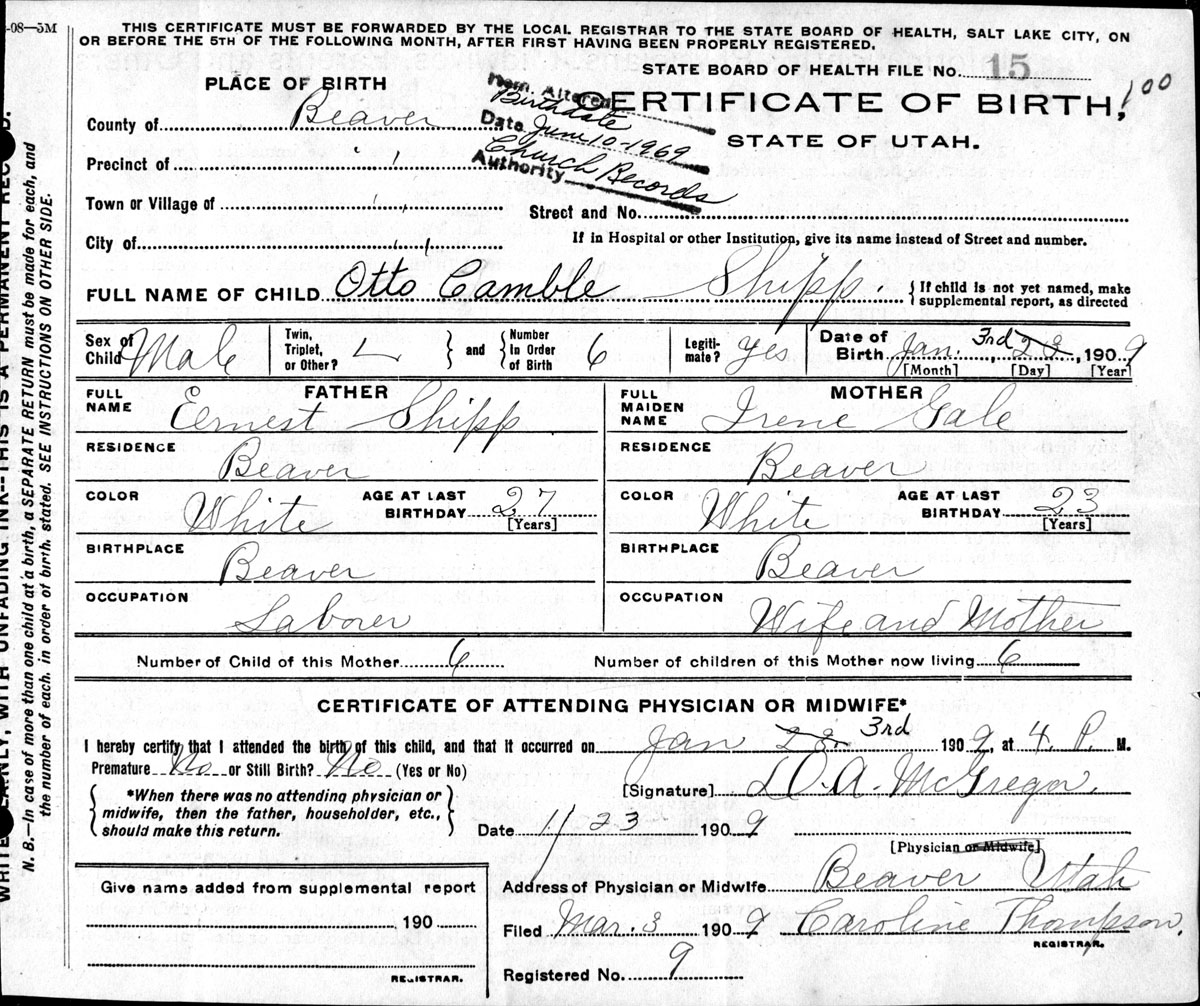 -08—5M
THIS CERTIFICATE MUST BE FORWARDED BY THE LOCAL REGISTRAR TO THE STATE BOARD OF HEALTH, SALT LAKE CITY, ON
OR BEFORE THE 5TH OF THE FOLLOWING MONTH, AFTER FIRST HAVING BEEN PROPERLY REGISTERED.
STATE BOARD OF HEALTH FILE No. 15
PLACE OF BIRTH
CERTIFICATE OF BIRTH,
100
STATE OF UTAH.
Item Altered Birthdate
Date June 10-1969
Authority Church Records
County of Beaver
Precinct of " "
Town or Village of " "
Street and No.
City of " "
If in Hospital or other Institution, give its name instead of Street and number.
FULL NAME OF CHILD Otto Camble Shipp. { If child is not yet named, make
supplemental report, as directed
Sex of Child Male Twin, Triplet, or Other? } and { Number In Order of Birth 6 Legiti-mate? Yes Date of Birth Jan. 3rd 23, 1909
[Month] [Day] [Year]
FATHER
FULL NAME Eernest Shipp
MOTHER
FULL MAIDEN NAME Irene Gale
RESIDENCE Beaver
RESIDENCE Beaver
COLOR White AGE AT LAST BIRTHDAY 27 [Years]
COLOR White AGE AT LAST BIRTHDAY 23 [Years]
BIRTHPLACE Beaver
BIRTHPLACE Beaver
OCCUPATION Laborer
OCCUPATION Wife and Mother
Number of Child of this Mother 6 Number of children of this Mother now living 6
CERTIFICATE OF ATTENDING PHYSICIAN OR MIDWIFE*
I hereby certify that I attended the birth of this child, and that it occurred on Jan 23 3rd 1909, at 4 P. M.
Premature No or Still Birth? No (Yes or No)
[Signature] D.A. McGregor.
{ *When there was no attending physician or
midwife, then the father, householder, etc.,
should make this return. }
Date 1/23 1909
[Physician or Midwife]
Give name added from supplemental report
190
REGISTRAR.
Address of Physician or Midwife Beaver Utah
Filed Mar. 3 1909 Caroline Thompson.
REGISTRAR.
Registered No. 9
WRITE PLAINLY, WITH UNFADING INK--THIS IS A PERMANENT RECORD.
N. B.—In case of more than one child at a birth, a SEPARATE RETURN must be made for each, and
the number of each, in order of birth, stated. SEE INSTRUCTIONS ON OTHER SIDE.